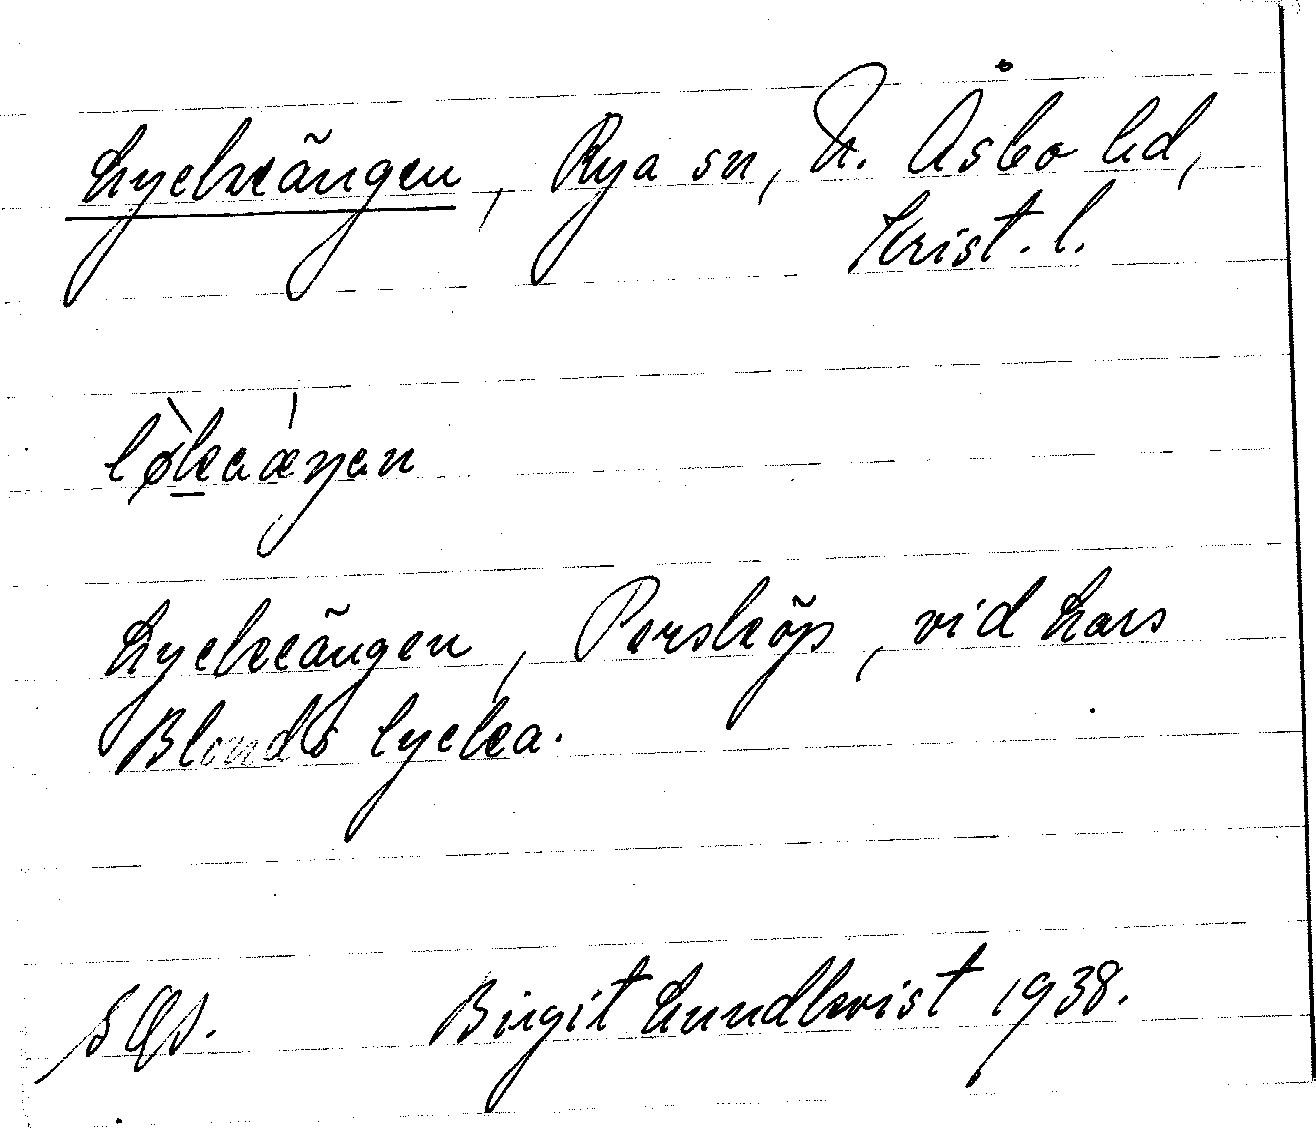 Lyckeängen, Rya sn, N. Åsbo hd,
Krist. l.
Lyckeängen, Persköp, vid Lars
Blonds lycka.
Birgit Lundkvist 1938.